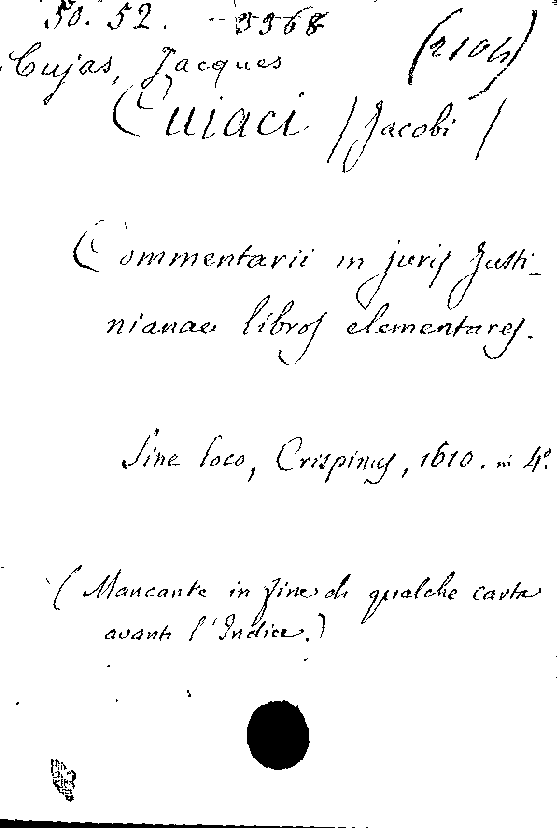 50. 52. -- 3368
Cujas, Jacques (2104)
Cuiaci /Jacobi/
Commentarii in juris Justi-
nianae libros elementares.
Sine loco, Crispinus, 1610. in 4°.
(Mancante in fine di qualche carta
avanti l'Indice.)